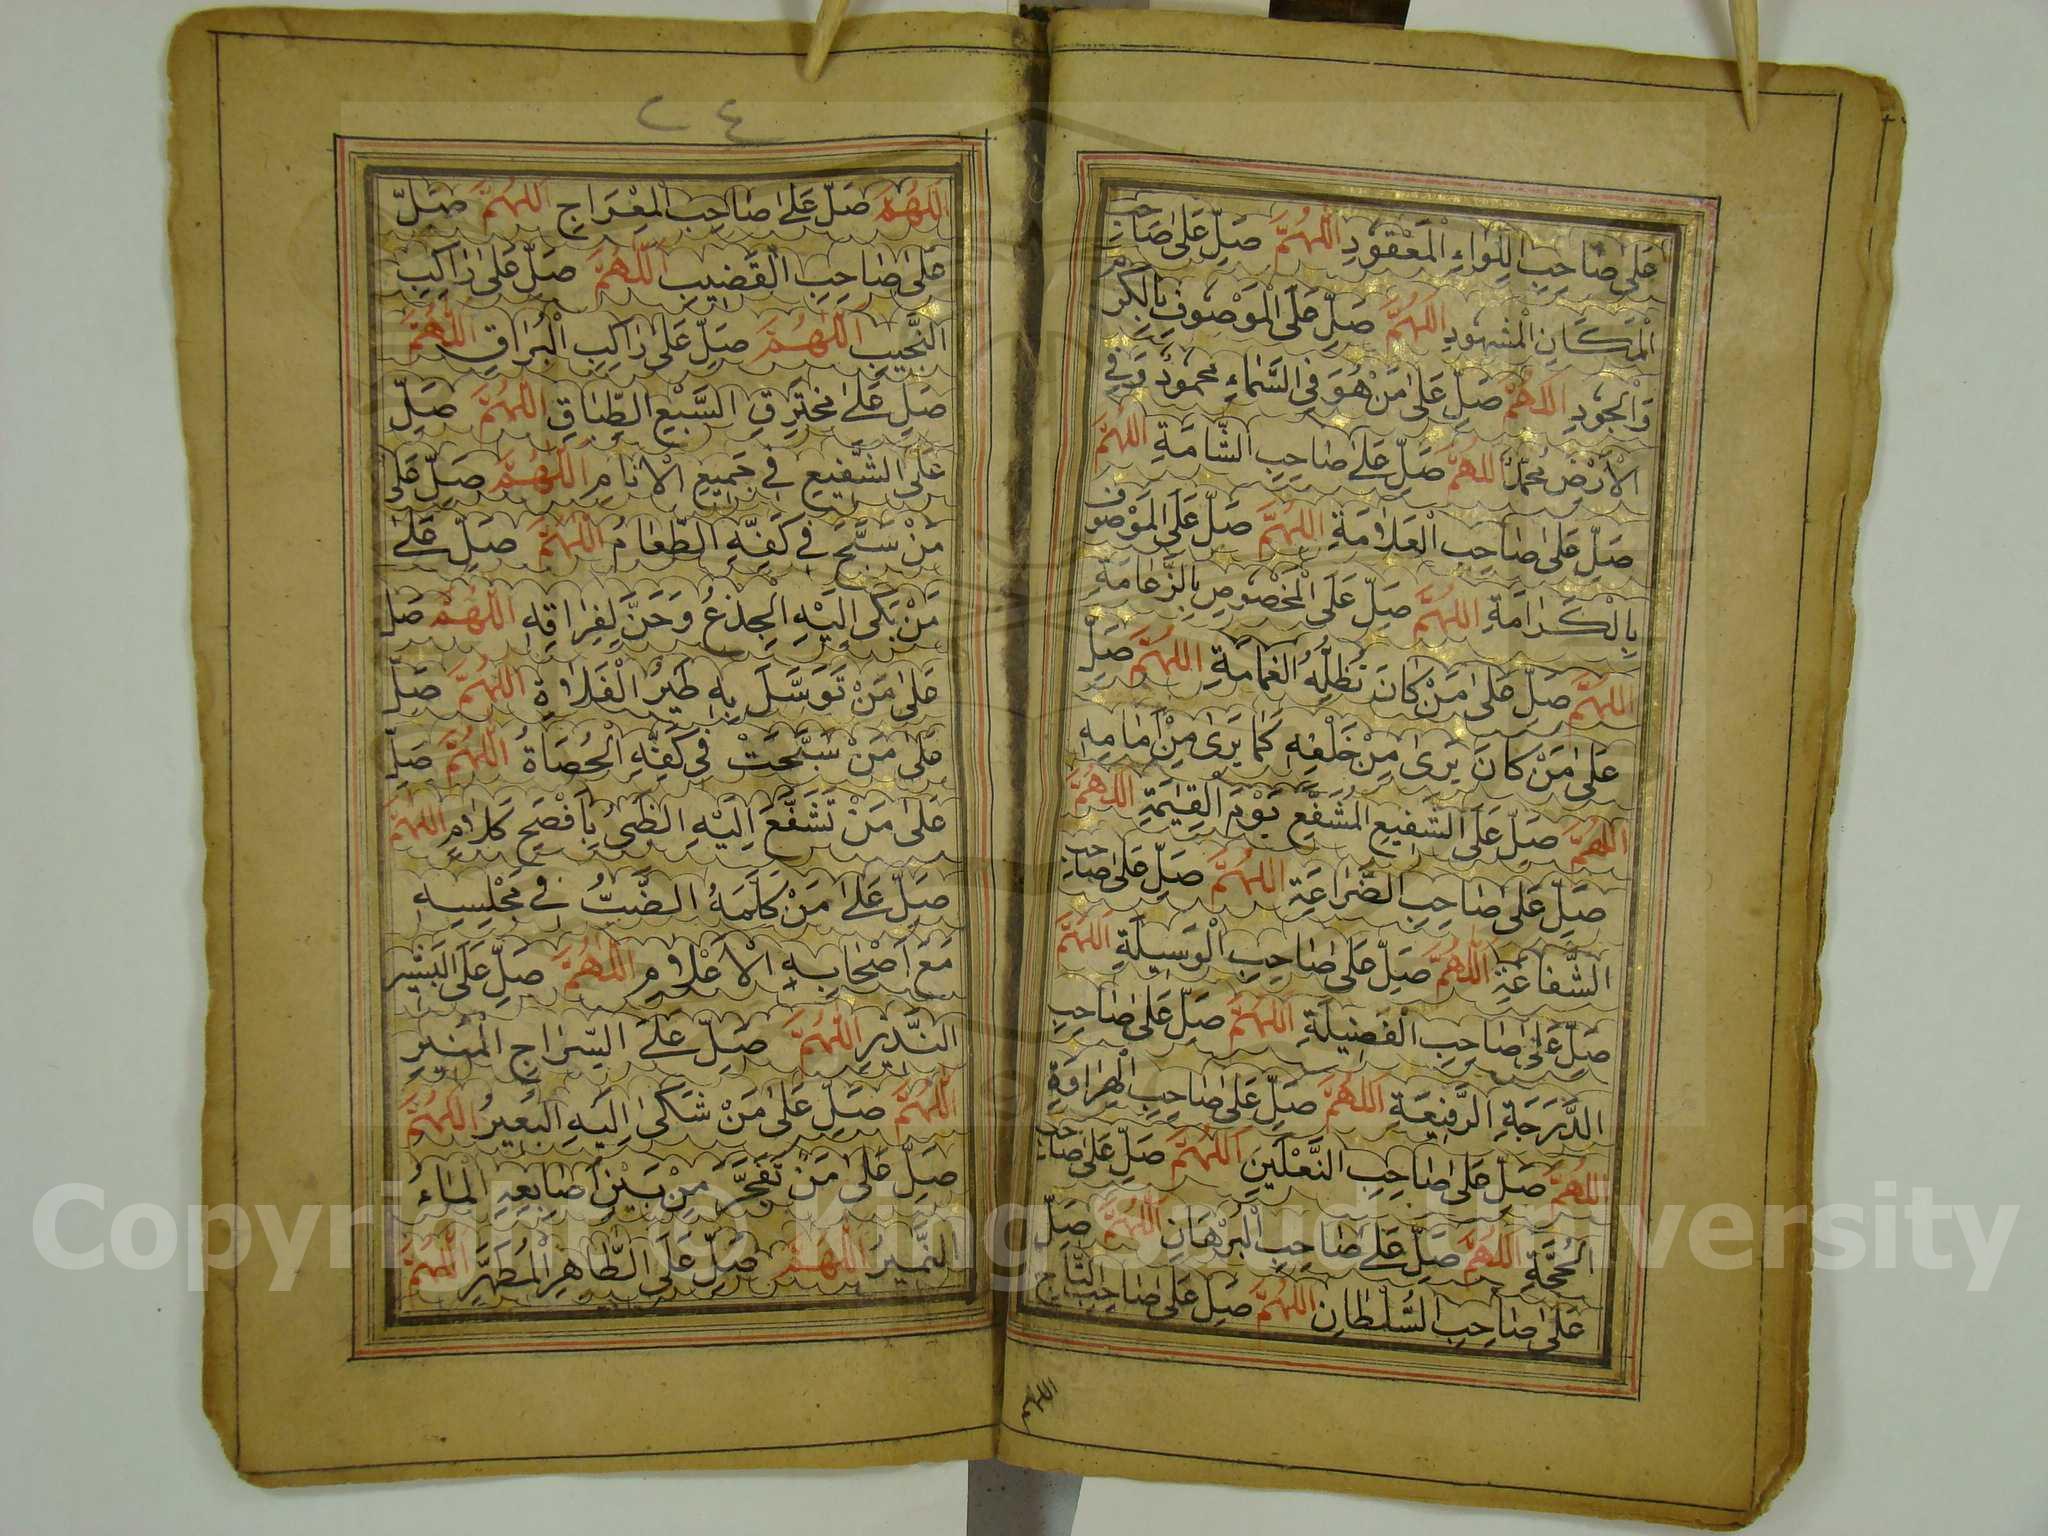 عَلىٰ صَاحِبِ اللِّوَاءِ الْمَعْقُودِ اَللّٰهُمَّ صَلِّ عَلىٰ صَاحِبِ
الْمَكَانِ الْمَشْهُودِ اَللّٰهُمَّ صَلِّ عَلَى الْمَوْصُوفِ بِالْكَرَمِ
وَالْجُودِ اَللّٰهُمَّ صَلِّ عَلىٰ مَنْ هُوَ فِي السَّمَاءِ مَحْمُودٌ وَفِي
الْاَرْضِ مُحَمَّدٌ اَللّٰهُمَّ صَلِّ عَلىٰ صَاحِبِ الشَّامَةِ اَللّٰهُمَّ
صَلِّ عَلىٰ صَاحِبِ الْعَلَامَةِ اَللّٰهُمَّ صَلِّ عَلَى الْمَوْصُوفِ
بِالْكَرَامَةِ اَللّٰهُمَّ صَلِّ عَلَى الْمَخْصُوصِ بِالزَّعَامَةِ
اَللّٰهُمَّ صَلِّ عَلىٰ مَنْ كَانَ تُظِلُّهُ الْغَمَامَةِ اَللّٰهُمَّ صَلِّ
عَلىٰ مَنْ كَانَ يَرىٰ مِنْ خَلْفِهِ كَمَا يَرىٰ مِنْ اَمَامِهِ
اَللّٰهُمَّ صَلِّ عَلَى الشَّفِيعِ الْمُشَفَّعِ يَوْمَ الْقِيٰمَةِ اَللّٰهُمَّ
صَلِّ عَلىٰ صَاحِبِ الضَّرَاعَةِ اَللّٰهُمَّ صَلِّ عَلىٰ صَاحِبِ
الشَّفَاعَةِ اَللّٰهُمَّ صَلِّ عَلىٰ صَاحِبِ الْوَسِيلَةِ اَللّٰهُمَّ
صَلِّ عَلىٰ صَاحِبِ الْفَضِيلَةِ اَللّٰهُمَّ صَلِّ عَلىٰ صَاحِبِ
الدَّرَجَةِ الرَّفِيعَةِ اَللّٰهُمَّ صَلِّ عَلىٰ صَاحِبِ الْهِرَاوَةِ
اَللّٰهُمَّ صَلِّ عَلىٰ صَاحِبِ النَّعْلَيْنِ اَللّٰهُمَّ صَلِّ عَلىٰ صَاحِبِ
الْحُجَّةِ اَللّٰهُمَّ صَلِّ عَلىٰ صَاحِبِ الْبُرْهَانِ اَللّٰهُمَّ صَلِّ
عَلىٰ صَاحِبِ السُّلْطَانِ اَللّٰهُمَّ صَلِّ عَلىٰ صَاحِبِ التَّاجِ
اللهم
٢٤
اَللّٰهُمَّ صَلِّ عَلىٰ صَاحِبِ الْمِعْرَاجِ اَللّٰهُمَّ صَلِّ
عَلىٰ صَاحِبِ الْقَضِيبِ اَللّٰهُمَّ صَلِّ عَلىٰ رَاكِبِ
النَّجِيبِ اَللّٰهُمَّ صَلِّ عَلىٰ رَاكِبِ الْبُرَاقِ اَللّٰهُمَّ
صَلِّ عَلىٰ مُخْتَرِقِ السَّبْعِ الطِّبَاقِ اَللّٰهُمَّ صَلِّ
عَلَى الشَّفِيعِ فِي جَمِيعِ الْاَنَامِ اَللّٰهُمَّ صَلِّ عَلىٰ
مَنْ سَبَّحَ فِي كَفِّهِ الطَّعَامُ اَللّٰهُمَّ صَلِّ عَلىٰ
مَنْ بَكىٰ اِلَيْهِ الْجِذْعُ وَحَنَّ لِفِرَاقِهِ اَللّٰهُمَّ صَلِّ
عَلىٰ مَنْ تَوَسَّلَ بِهِ طَيْرُ الْفَلَاةِ اَللّٰهُمَّ صَلِّ
عَلىٰ مَنْ سَبَّحَتْ فِي كَفِّهِ الْحَصَاةُ اَللّٰهُمَّ صَلِّ
عَلىٰ مَنْ تَشَفَّعَ اِلَيْهِ الظَّبْيُ بِاَفْصَحِ كَلَامٍ اَللّٰهُمَّ
صَلِّ عَلىٰ مَنْ كَلَّمَهُ الضَّبُّ فِي مَجْلِسِهِ
مَعَ اَصْحَابِهِ الْاَعْلَامِ اَللّٰهُمَّ صَلِّ عَلَى الْبَشِيرِ
النَّذِيرِ اَللّٰهُمَّ صَلِّ عَلَى السِّرَاجِ الْمُنِيرِ
اَللّٰهُمَّ صَلِّ عَلىٰ مَنْ شَكىٰ اِلَيْهِ الْبَعِيرُ اَللّٰهُمَّ
صَلِّ عَلىٰ مَنْ تَفَجَّرَ مِنْ بَيْنِ اَصَابِعِهِ الْمَاءُ
النَّمِيرُ اَللّٰهُمَّ صَلِّ عَلَى الطَّاهِرِ الْمُطَهَّرِ اَللّٰهُمَّ
Copyright © King Saud University